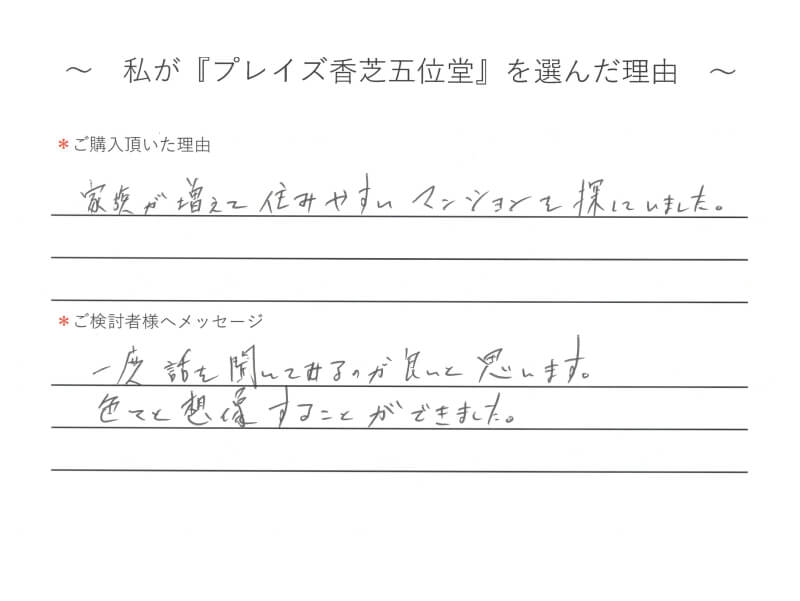 ～ 私が『プレイズ香芝五位堂』を選んだ理由 ～
*ご購入頂いた理由
家族が増えて住みやすいマンションを探していました。
*ご検討者様へメッセージ
一度話を聞いてみるのが良いと思います。
色々と想像することができました。